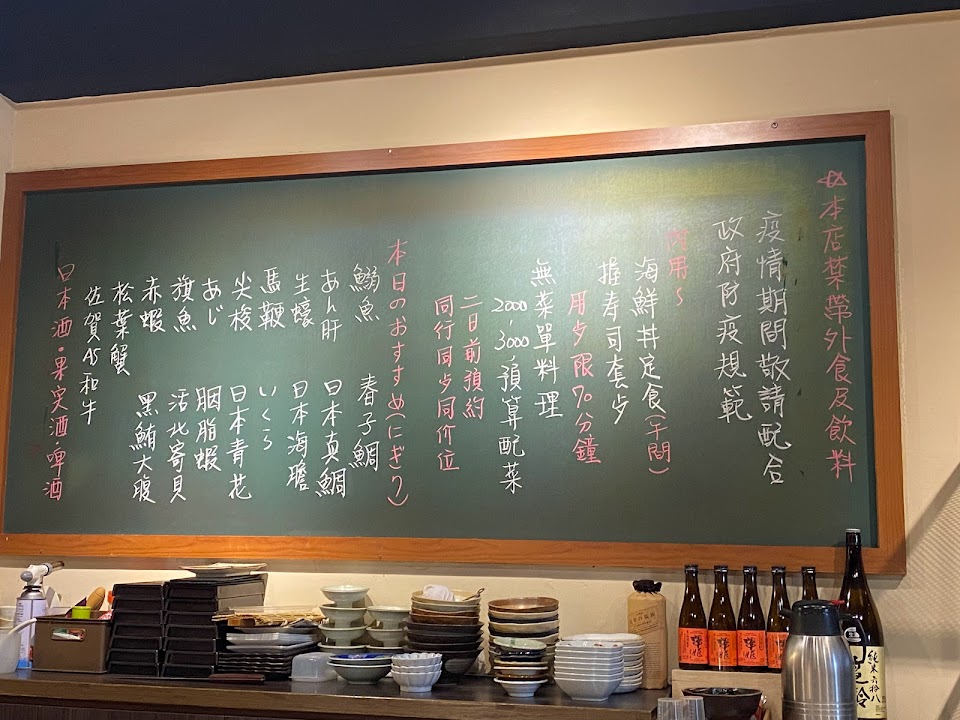 本店禁帶外食及飲料
疫情期間敬請配合
政府防疫規範
內用~
海鮮丼定食(午間)
握寿司套歺
用歺限70分鐘
無菜單料理
2000~3000預算配菜
二日前預約
同行同歺同价位
本日のおすすめ(にぎり)
鰯魚 春子鯛
あん肝 日本真鯛
生蠔 日本海膽
馬鞭 いくら
尖梭 日本青花
あじ 胭脂蝦
旗魚 活北寄貝
赤蝦 黑鮪大腹
松葉蟹
佐賀A5和牛
日本酒・果実酒・啤酒
純米